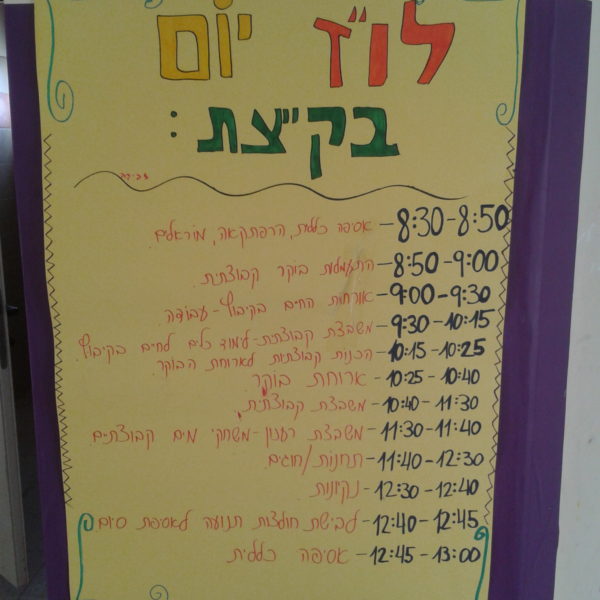 לו"ז יום
בק"צת:
8:30-8:50 - אסיפה כללית, הרפתקאה, מוראלים.
8:50-9:00 - התעמלות בוקר קבוצתית.
9:00-9:30 - אורחות החיים בקיבוץ - עבודה.
9:30-10:15 - משבצת קבוצתית - לימוד כלים לחיים בקיבוץ.
10:15-10:25 - הכנות קבוצתיות לארוחת הבוקר.
10:25-10:40 - ארוחת בוקר.
10:40-11:30 - משבצת קבוצתית.
11:30-11:40 - משבצת רענון - משחקי מים קבוצתיים.
11:40-12:30 - תחנות/חוגים.
12:30-12:40 - נקיונות.
12:40-12:45 - לבישת חולצות תנועה לאסיפת סיום
12:45-13:00 - אסיפה כללית